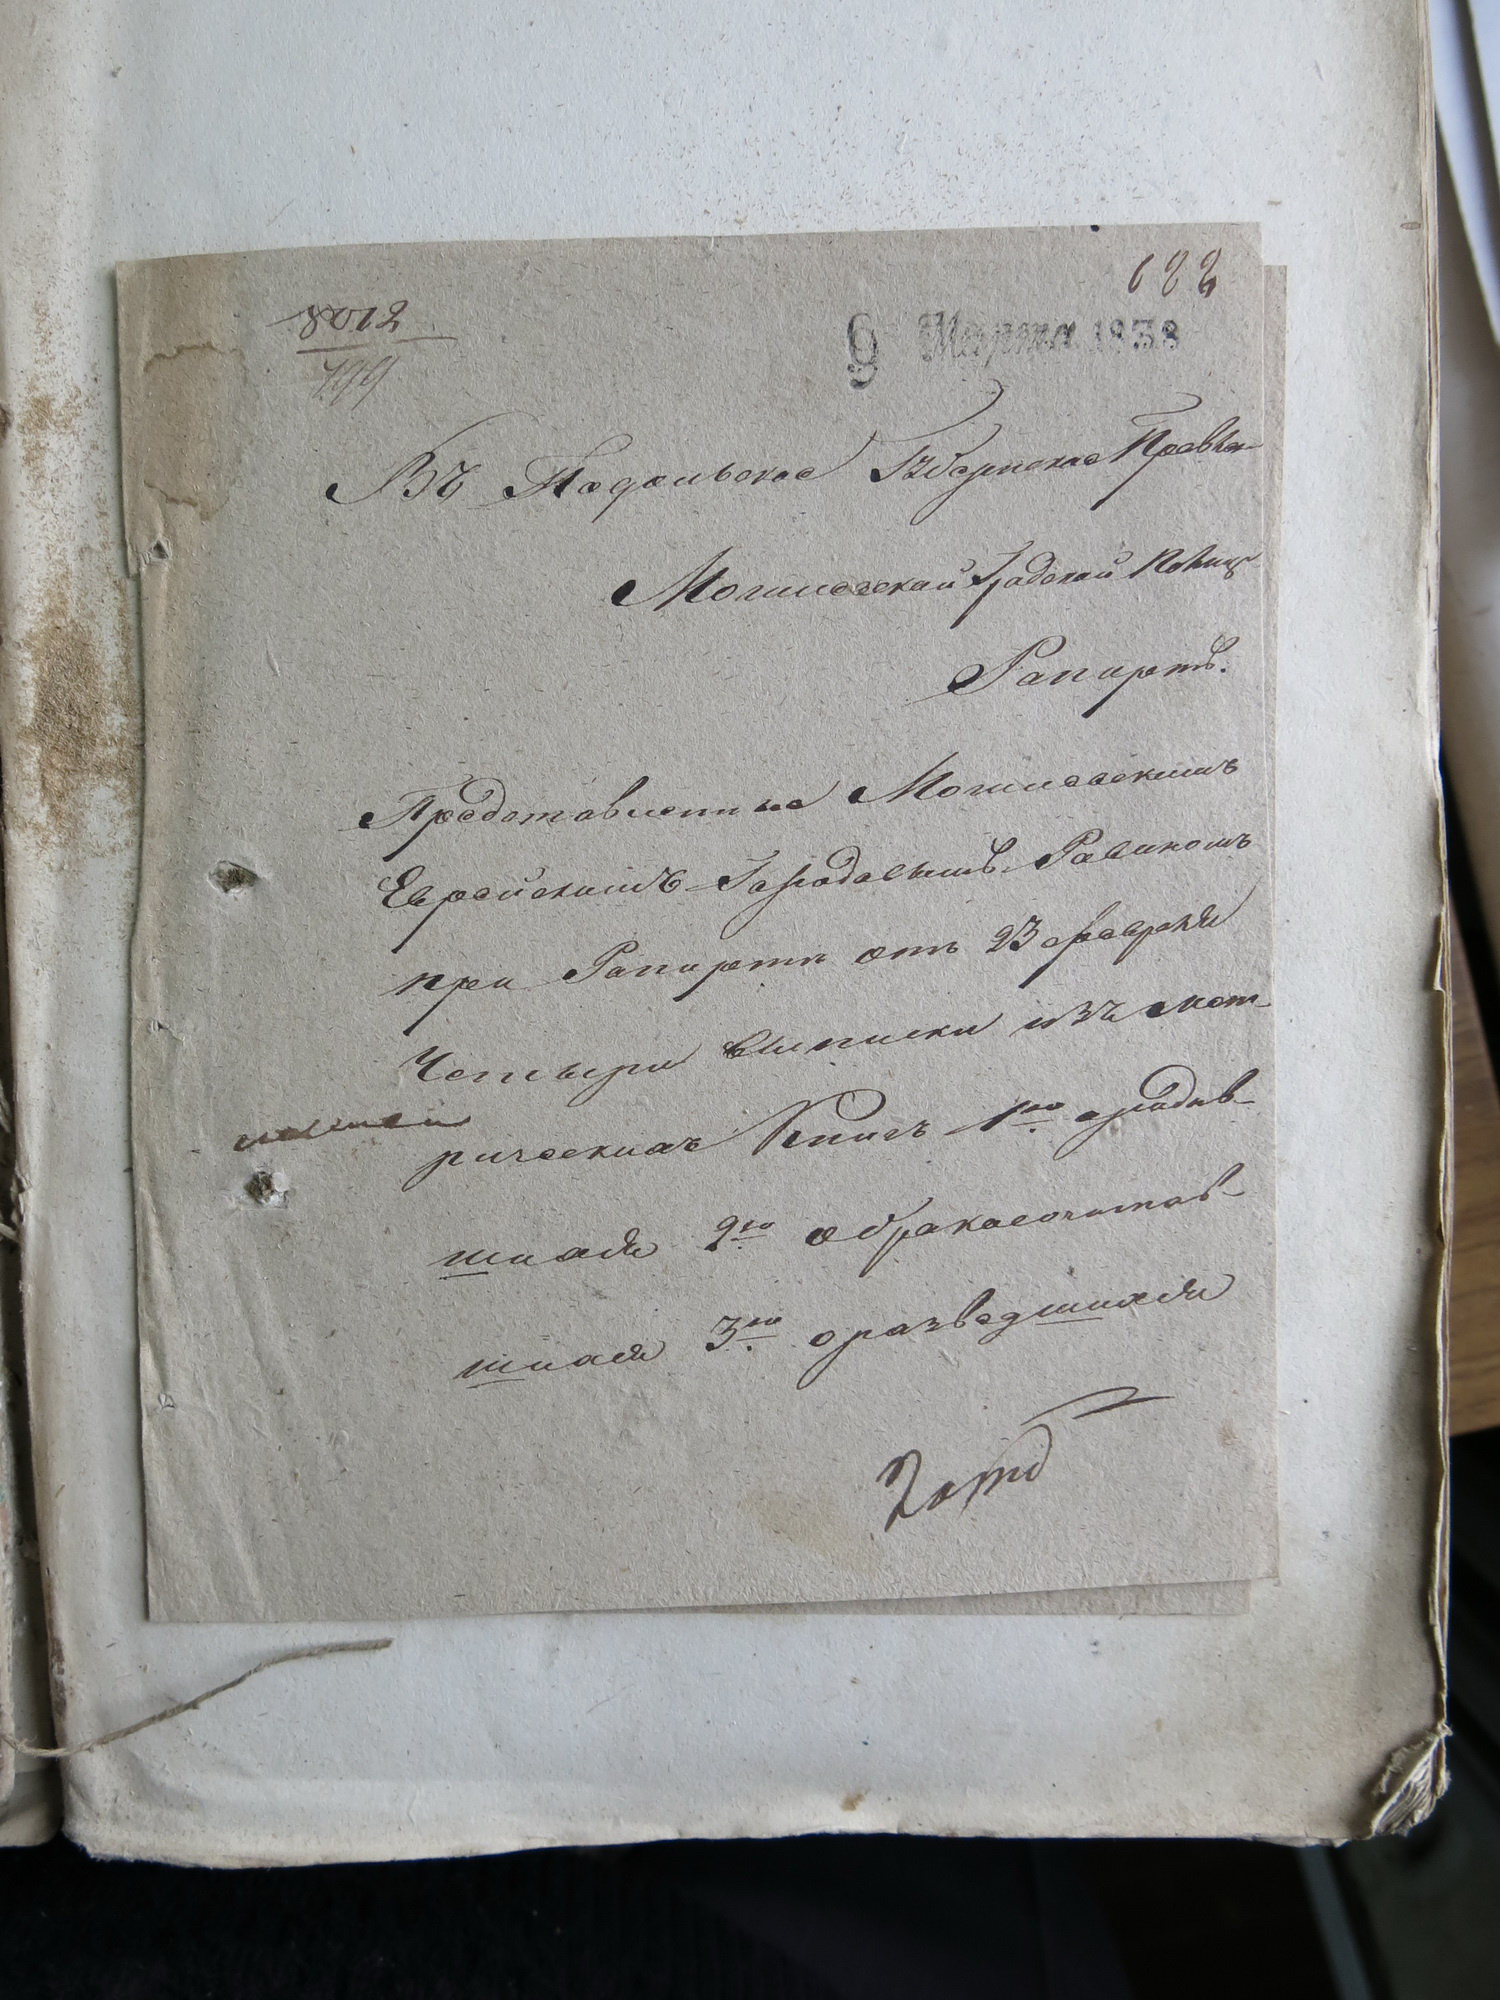 8012
799
688
9 Марта 1838
Въ Подольское Губернское Правле-
Могилевской Градской Полиц
Рапортъ.
Представленные Могилевскимъ
Еврейскимъ Городовымъ Равиномъ
при Рапорте отъ 23 февраля
Четыри выписки изъ мет-
рическихъ Книгъ 1го ородив-
шихся 2го обракосочетав-
шихся 3го оразведшихся